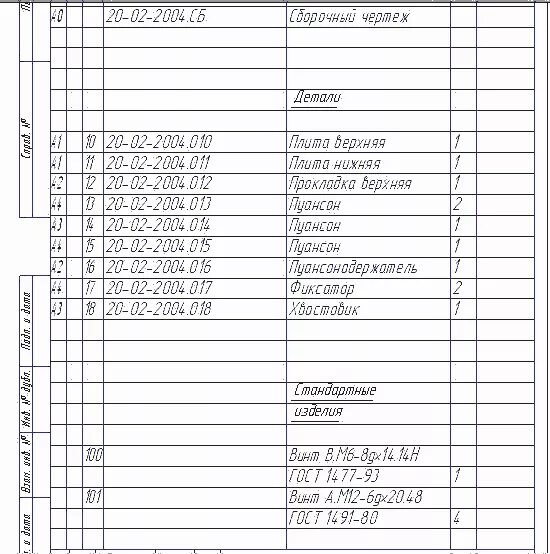 А0 20-02-2004.СБ. Сборочный чертеж
Детали
А1 10 20-02-2004.010 Плита верхняя 1
А1 11 20-02-2004.011 Плита нижняя 1
А2 12 20-02-2004.012 Прокладка верхняя 1
А4 13 20-02-2004.013 Пуансон 2
А3 14 20-02-2004.014 Пуансон 1
А4 15 20-02-2004.015 Пуансон 1
А2 16 20-02-2004.016 Пуансонодержатель 1
А4 17 20-02-2004.017 Фиксатор 2
А3 18 20-02-2004.018 Хвостовик 1
Стандартные
изделия
100 Винт В.М6-8gх14.14Н
ГОСТ 1477-93 1
101 Винт А.М12-6gх20.48
ГОСТ 1491-80 4
Справ. №
Подп. и дата
Инв. № дубл.
Взам. инв. №
и дата